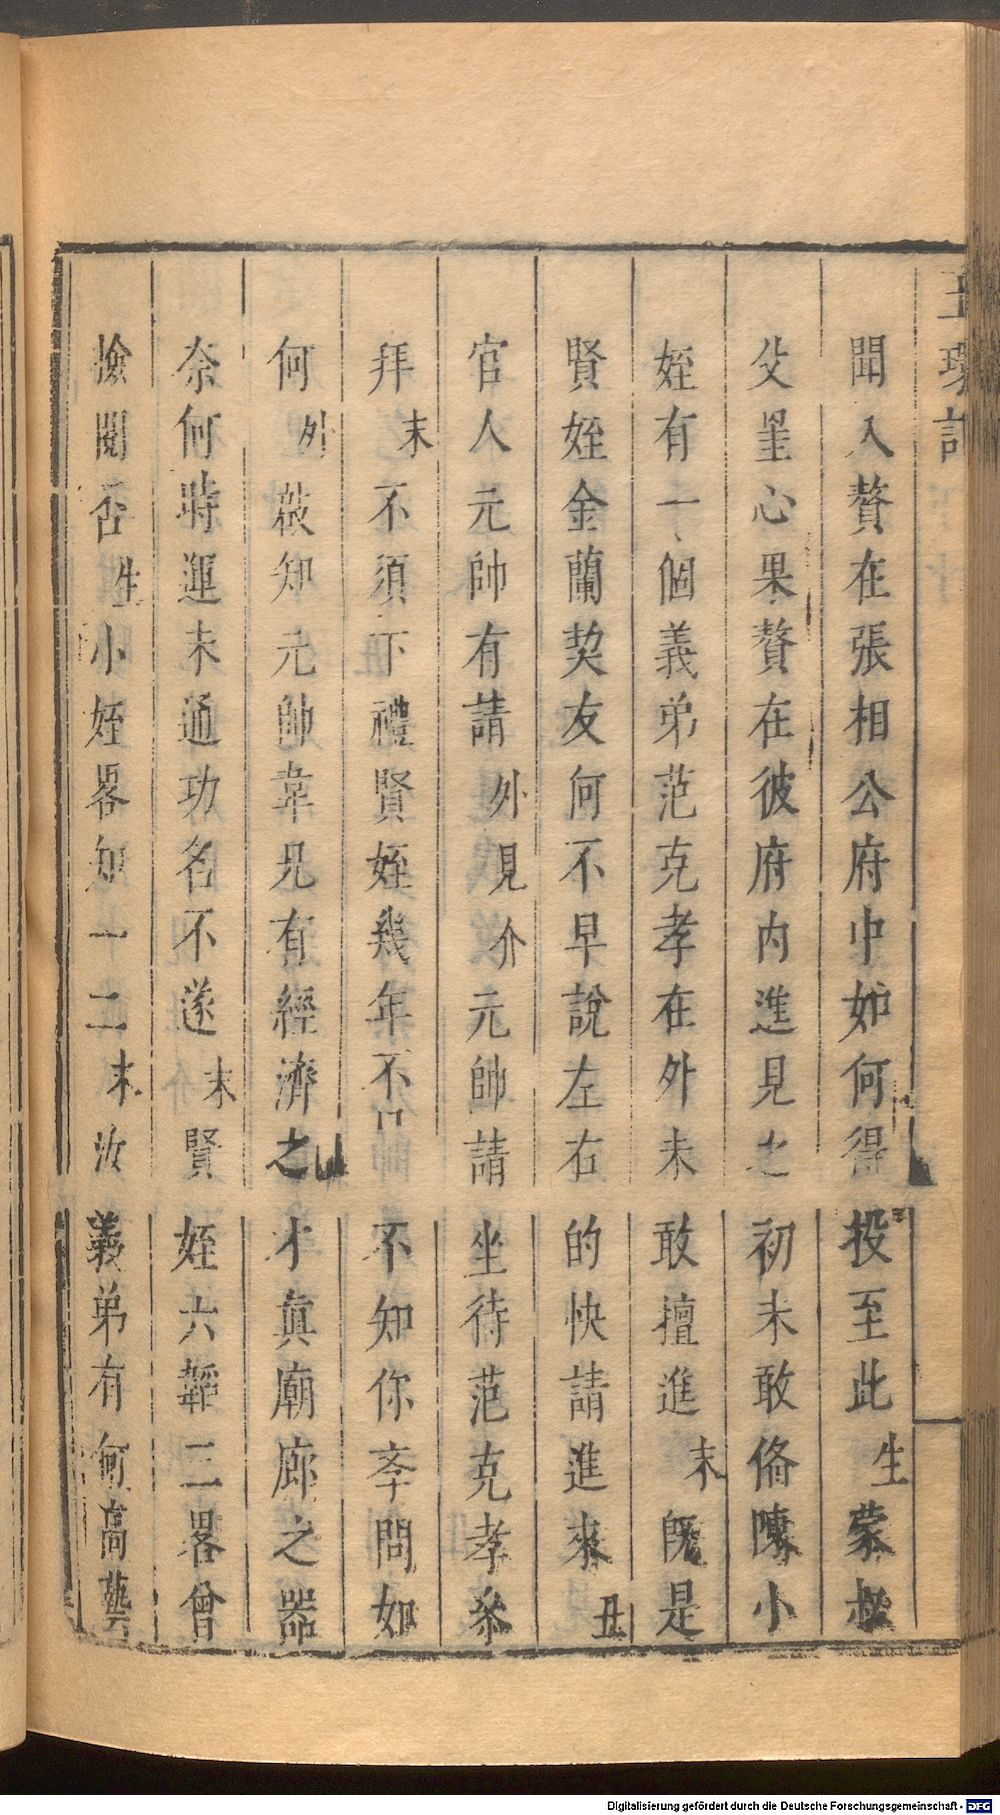 玉環記
聞入贅在張相公府中如何得投至此生蒙叔
父垦心果贅在彼府内進見之初未敢俻陳小
姪有一個義弟范克孝在外未敢擅進末既是
賢姪金蘭契友何不早說左右的快請進來丑
官人元帥有請外見介元帥請坐待范克孝叅
拜末不須下禮賢姪幾年不不知你斈問如
何外啟知元帥韋兄有經濟之才真廟廊之器
奈何時運未通功名不遂末賢姪六韜二畧曾
撿閱否生小姪畧知一二末汝義弟有何高藝
Digitalisierung gefördert durch die Deutsche Forschungsgemeinschaft - DFG